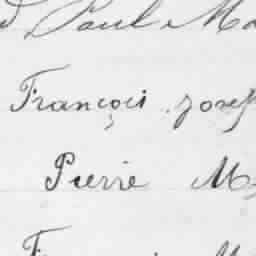 Paul Ma
François Josep
Pierre M